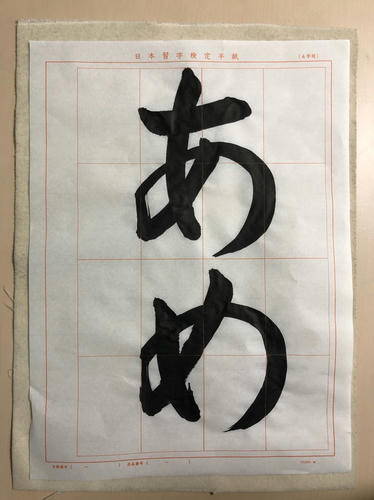 日本習字検定半紙
(6字用)
あ
め